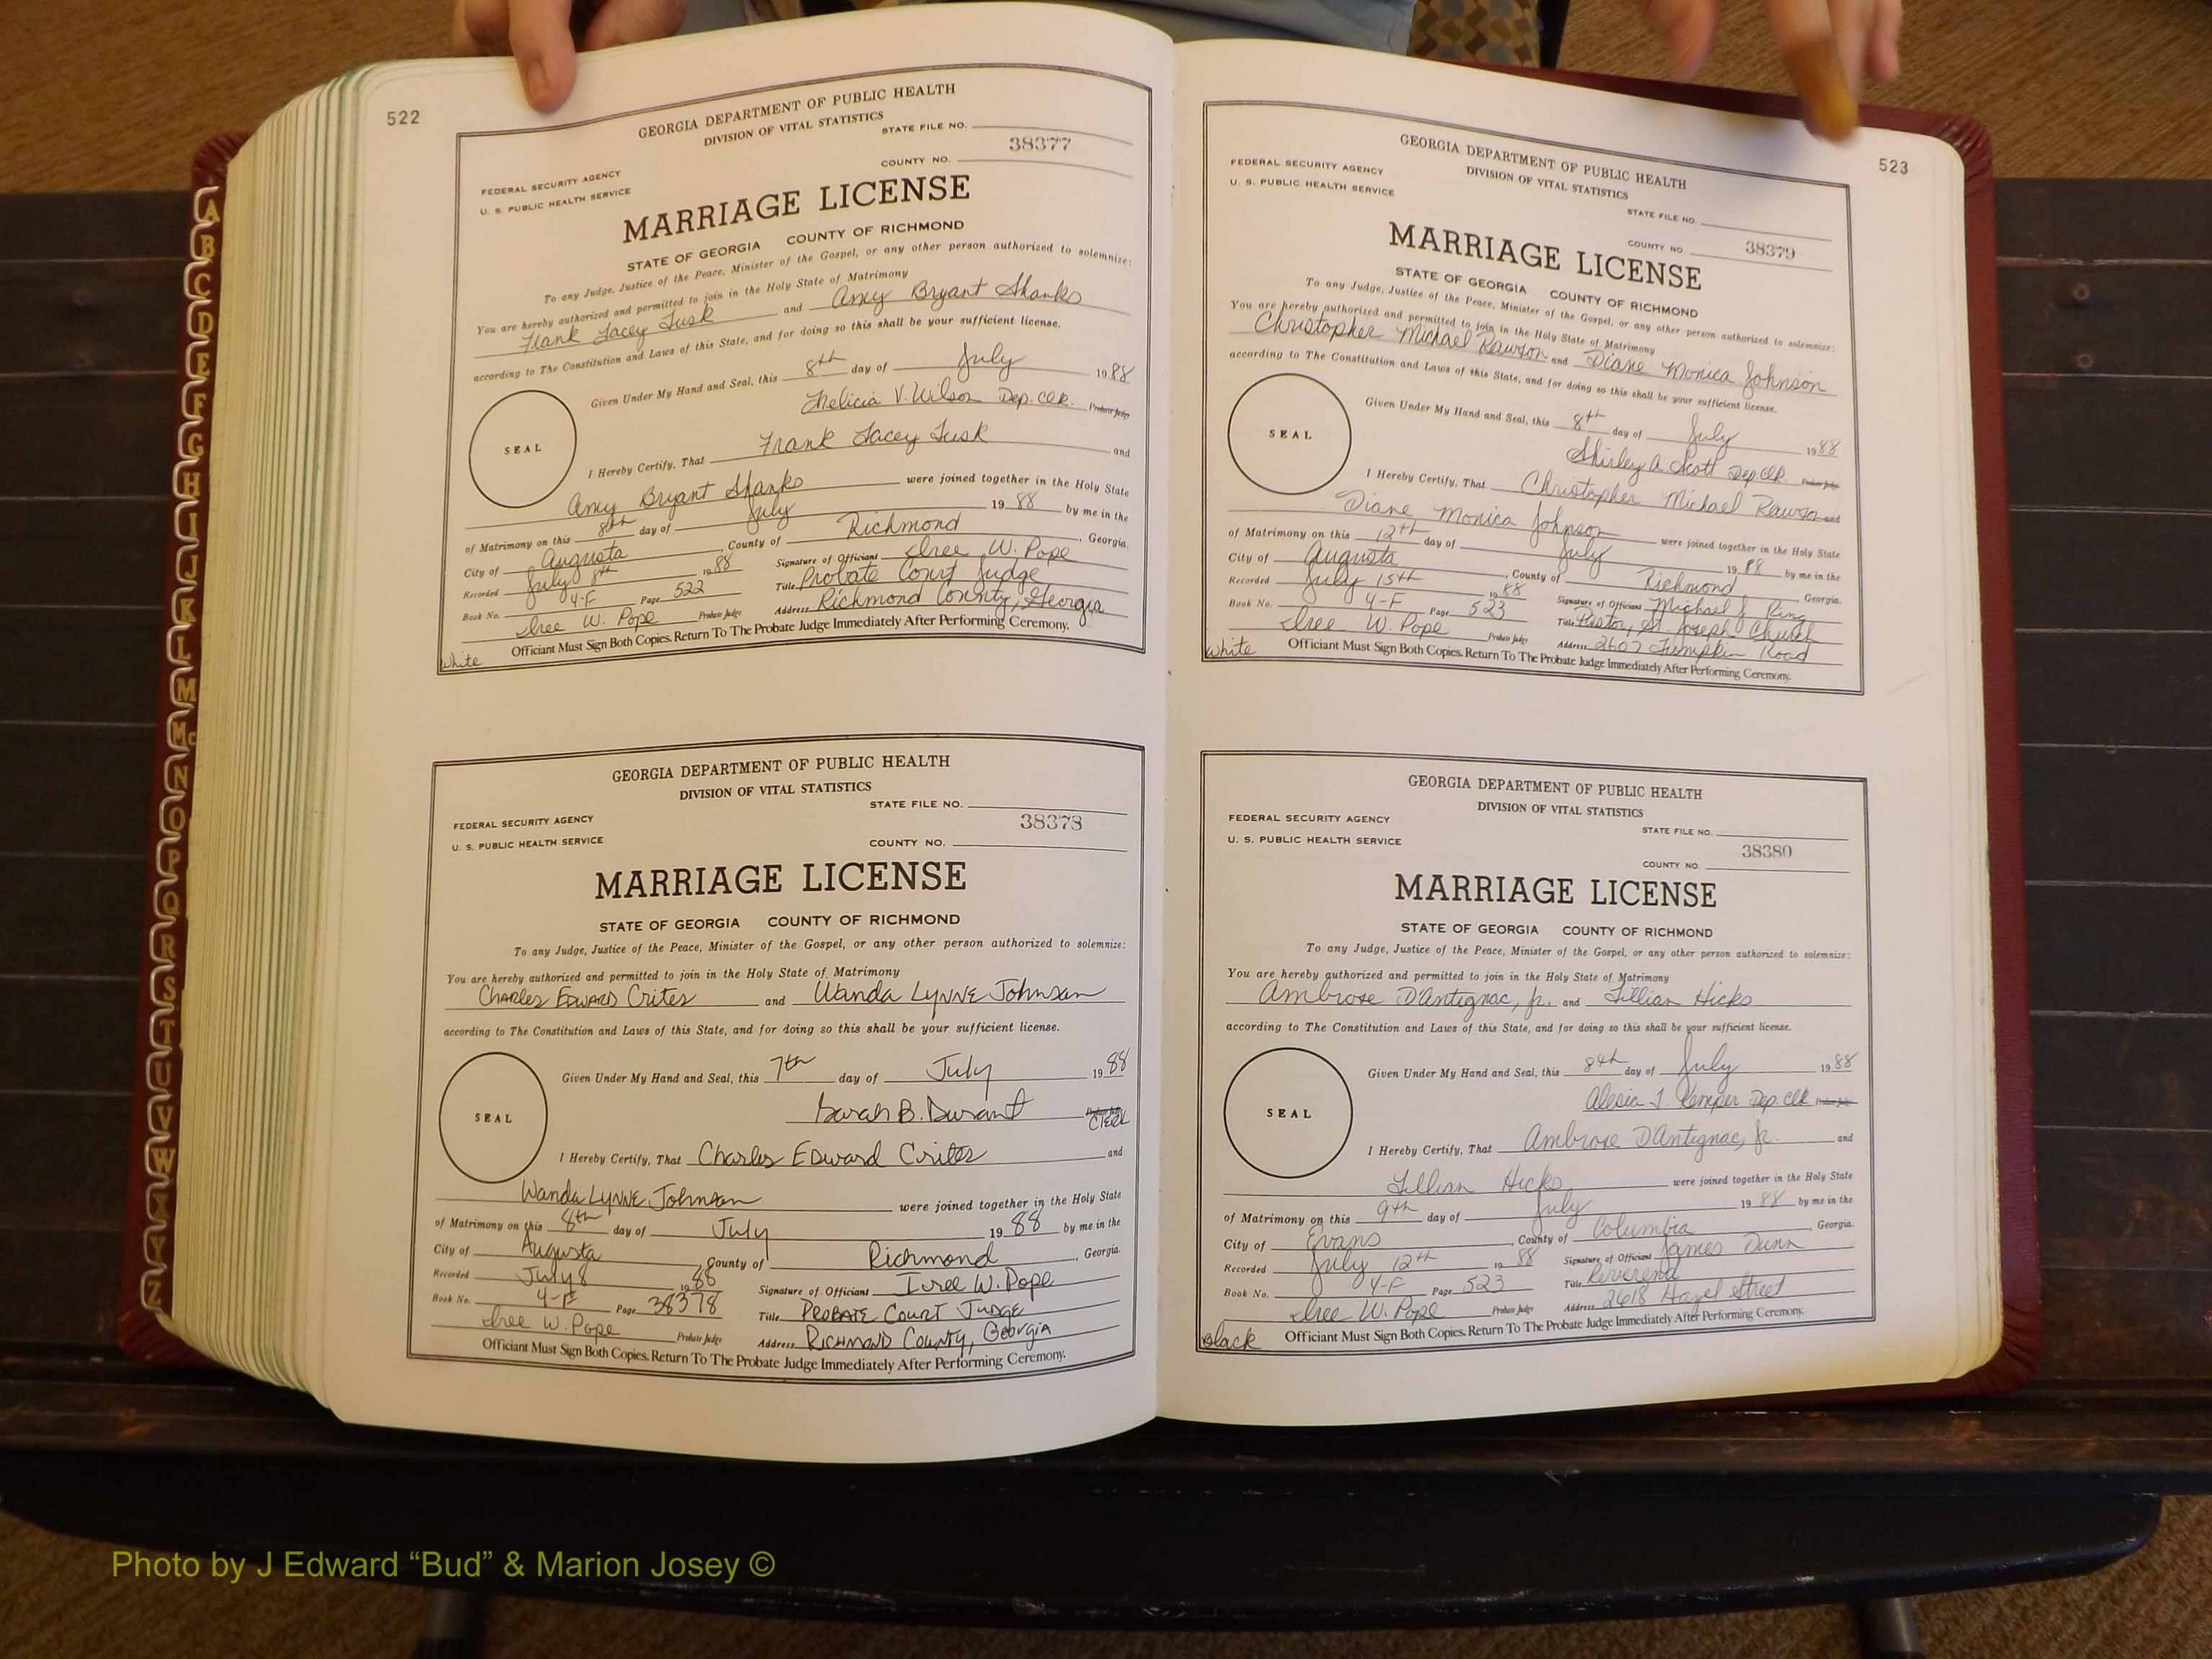 522
GEORGIA DEPARTMENT OF PUBLIC HEALTH
DIVISION OF VITAL STATISTICS
STATE FILE NO.
38377
COUNTY NO.
FEDERAL SECURITY AGENCY
U. S. PUBLIC HEALTH SERVICE
MARRIAGE LICENSE
STATE OF GEORGIA COUNTY OF RICHMOND
To any Judge, Justice of the Peace, Minister of the Gospel, or any other person authorized to solemnize:
You are hereby authorized and permitted to join in the Holy State of Matrimony
Frank Lacey Lusk and Amy Bryant Shanks
according to The Constitution and Laws of this State, and for doing so this shall be your sufficient license.
Given Under My Hand and Seal, this 8th day of July 1988
Thelicia V. Wilson Dep. Clk. Probate Judge
SEAL
I Hereby Certify, That Frank Lacey Lusk and
Amy Bryant Shanks were joined together in the Holy State
of Matrimony on this 8th day of July 19 88 by me in the
City of Augusta, County of Richmond, Georgia.
Recorded July 8th 1988 Signature of Officiant Isree W. Pope
Book No. 4-F Page 522 Title Probate Court Judge
Isree W. Pope Probate Judge Address Richmond County, Georgia
Officiant Must Sign Both Copies. Return To The Probate Judge Immediately After Performing Ceremony.
White
GEORGIA DEPARTMENT OF PUBLIC HEALTH
DIVISION OF VITAL STATISTICS
STATE FILE NO.
38378
FEDERAL SECURITY AGENCY
U. S. PUBLIC HEALTH SERVICE
COUNTY NO.
MARRIAGE LICENSE
STATE OF GEORGIA COUNTY OF RICHMOND
To any Judge, Justice of the Peace, Minister of the Gospel, or any other person authorized to solemnize:
You are hereby authorized and permitted to join in the Holy State of Matrimony
Charles Edward Crites and Wanda Lynne Johnson
according to The Constitution and Laws of this State, and for doing so this shall be your sufficient license.
Given Under My Hand and Seal, this 7th day of July 1988
Sarah B. Durant Clerk
SEAL
I Hereby Certify, That Charles Edward Crites and
Wanda Lynne Johnson were joined together in the Holy State
of Matrimony on this 8th day of July 19 88 by me in the
City of Augusta County of Richmond, Georgia.
Recorded July 8 1988 Signature of Officiant Isree W. Pope
Book No. 4-F Page 38378 Title Probate Court Judge
Isree W. Pope Probate Judge Address Richmond County, Georgia
Officiant Must Sign Both Copies. Return To The Probate Judge Immediately After Performing Ceremony.
523
GEORGIA DEPARTMENT OF PUBLIC HEALTH
DIVISION OF VITAL STATISTICS
FEDERAL SECURITY AGENCY
U. S. PUBLIC HEALTH SERVICE
STATE FILE NO.
COUNTY NO. 38379
MARRIAGE LICENSE
STATE OF GEORGIA COUNTY OF RICHMOND
To any Judge, Justice of the Peace, Minister of the Gospel, or any other person authorized to solemnize:
You are hereby authorized and permitted to join in the Holy State of Matrimony
Christopher Michael Rawson and Diane Monica Johnson
according to The Constitution and Laws of this State, and for doing so this shall be your sufficient license.
Given Under My Hand and Seal, this 8th day of July 1988
Shirley A. Scott Dep Clk Probate Judge
SEAL
I Hereby Certify, That Christopher Michael Rawson and
Diane Monica Johnson were joined together in the Holy State
of Matrimony on this 12th day of July 19 88 by me in the
City of Augusta, County of Richmond Georgia.
Recorded July 15th 1988 Signature of Officiant Michael J Ring
Book No. 4-F Page 523 Title Pastor, St. Joseph Church
Isree W. Pope Probate Judge Address 2607 Lumpkin Road
Officiant Must Sign Both Copies. Return To The Probate Judge Immediately After Performing Ceremony.
White
GEORGIA DEPARTMENT OF PUBLIC HEALTH
DIVISION OF VITAL STATISTICS
FEDERAL SECURITY AGENCY
STATE FILE NO.
38380
U. S. PUBLIC HEALTH SERVICE
COUNTY NO.
MARRIAGE LICENSE
STATE OF GEORGIA COUNTY OF RICHMOND
To any Judge, Justice of the Peace, Minister of the Gospel, or any other person authorized to solemnize:
You are hereby authorized and permitted to join in the Holy State of Matrimony
Ambrose D'Antignac, Jr. and Lillian Hicks
according to The Constitution and Laws of this State, and for doing so this shall be your sufficient license.
Given Under My Hand and Seal, this 8th day of July 1988
Alesia J. Kemper Dep. Clk Probate Judge
SEAL
I Hereby Certify, That Ambrose D'Antignac, Jr. and
Lillian Hicks were joined together in the Holy State
of Matrimony on this 9th day of July 19 88 by me in the
City of Evans, County of Columbia, Georgia.
Recorded July 12th 19 88 Signature of Officiant James Dunn
Book No. 4-F Page 523 Title Reverend
Isree W. Pope Probate Judge Address 2618 Hazel Street
Officiant Must Sign Both Copies. Return To The Probate Judge Immediately After Performing Ceremony.
Black
A
B
C
D
E
F
G
H
I
J
K
L
M
Mc
N
O
P
Q
R
S
T
U
V
W
X
Y
Z
Photo by J Edward “Bud” & Marion Josey ©